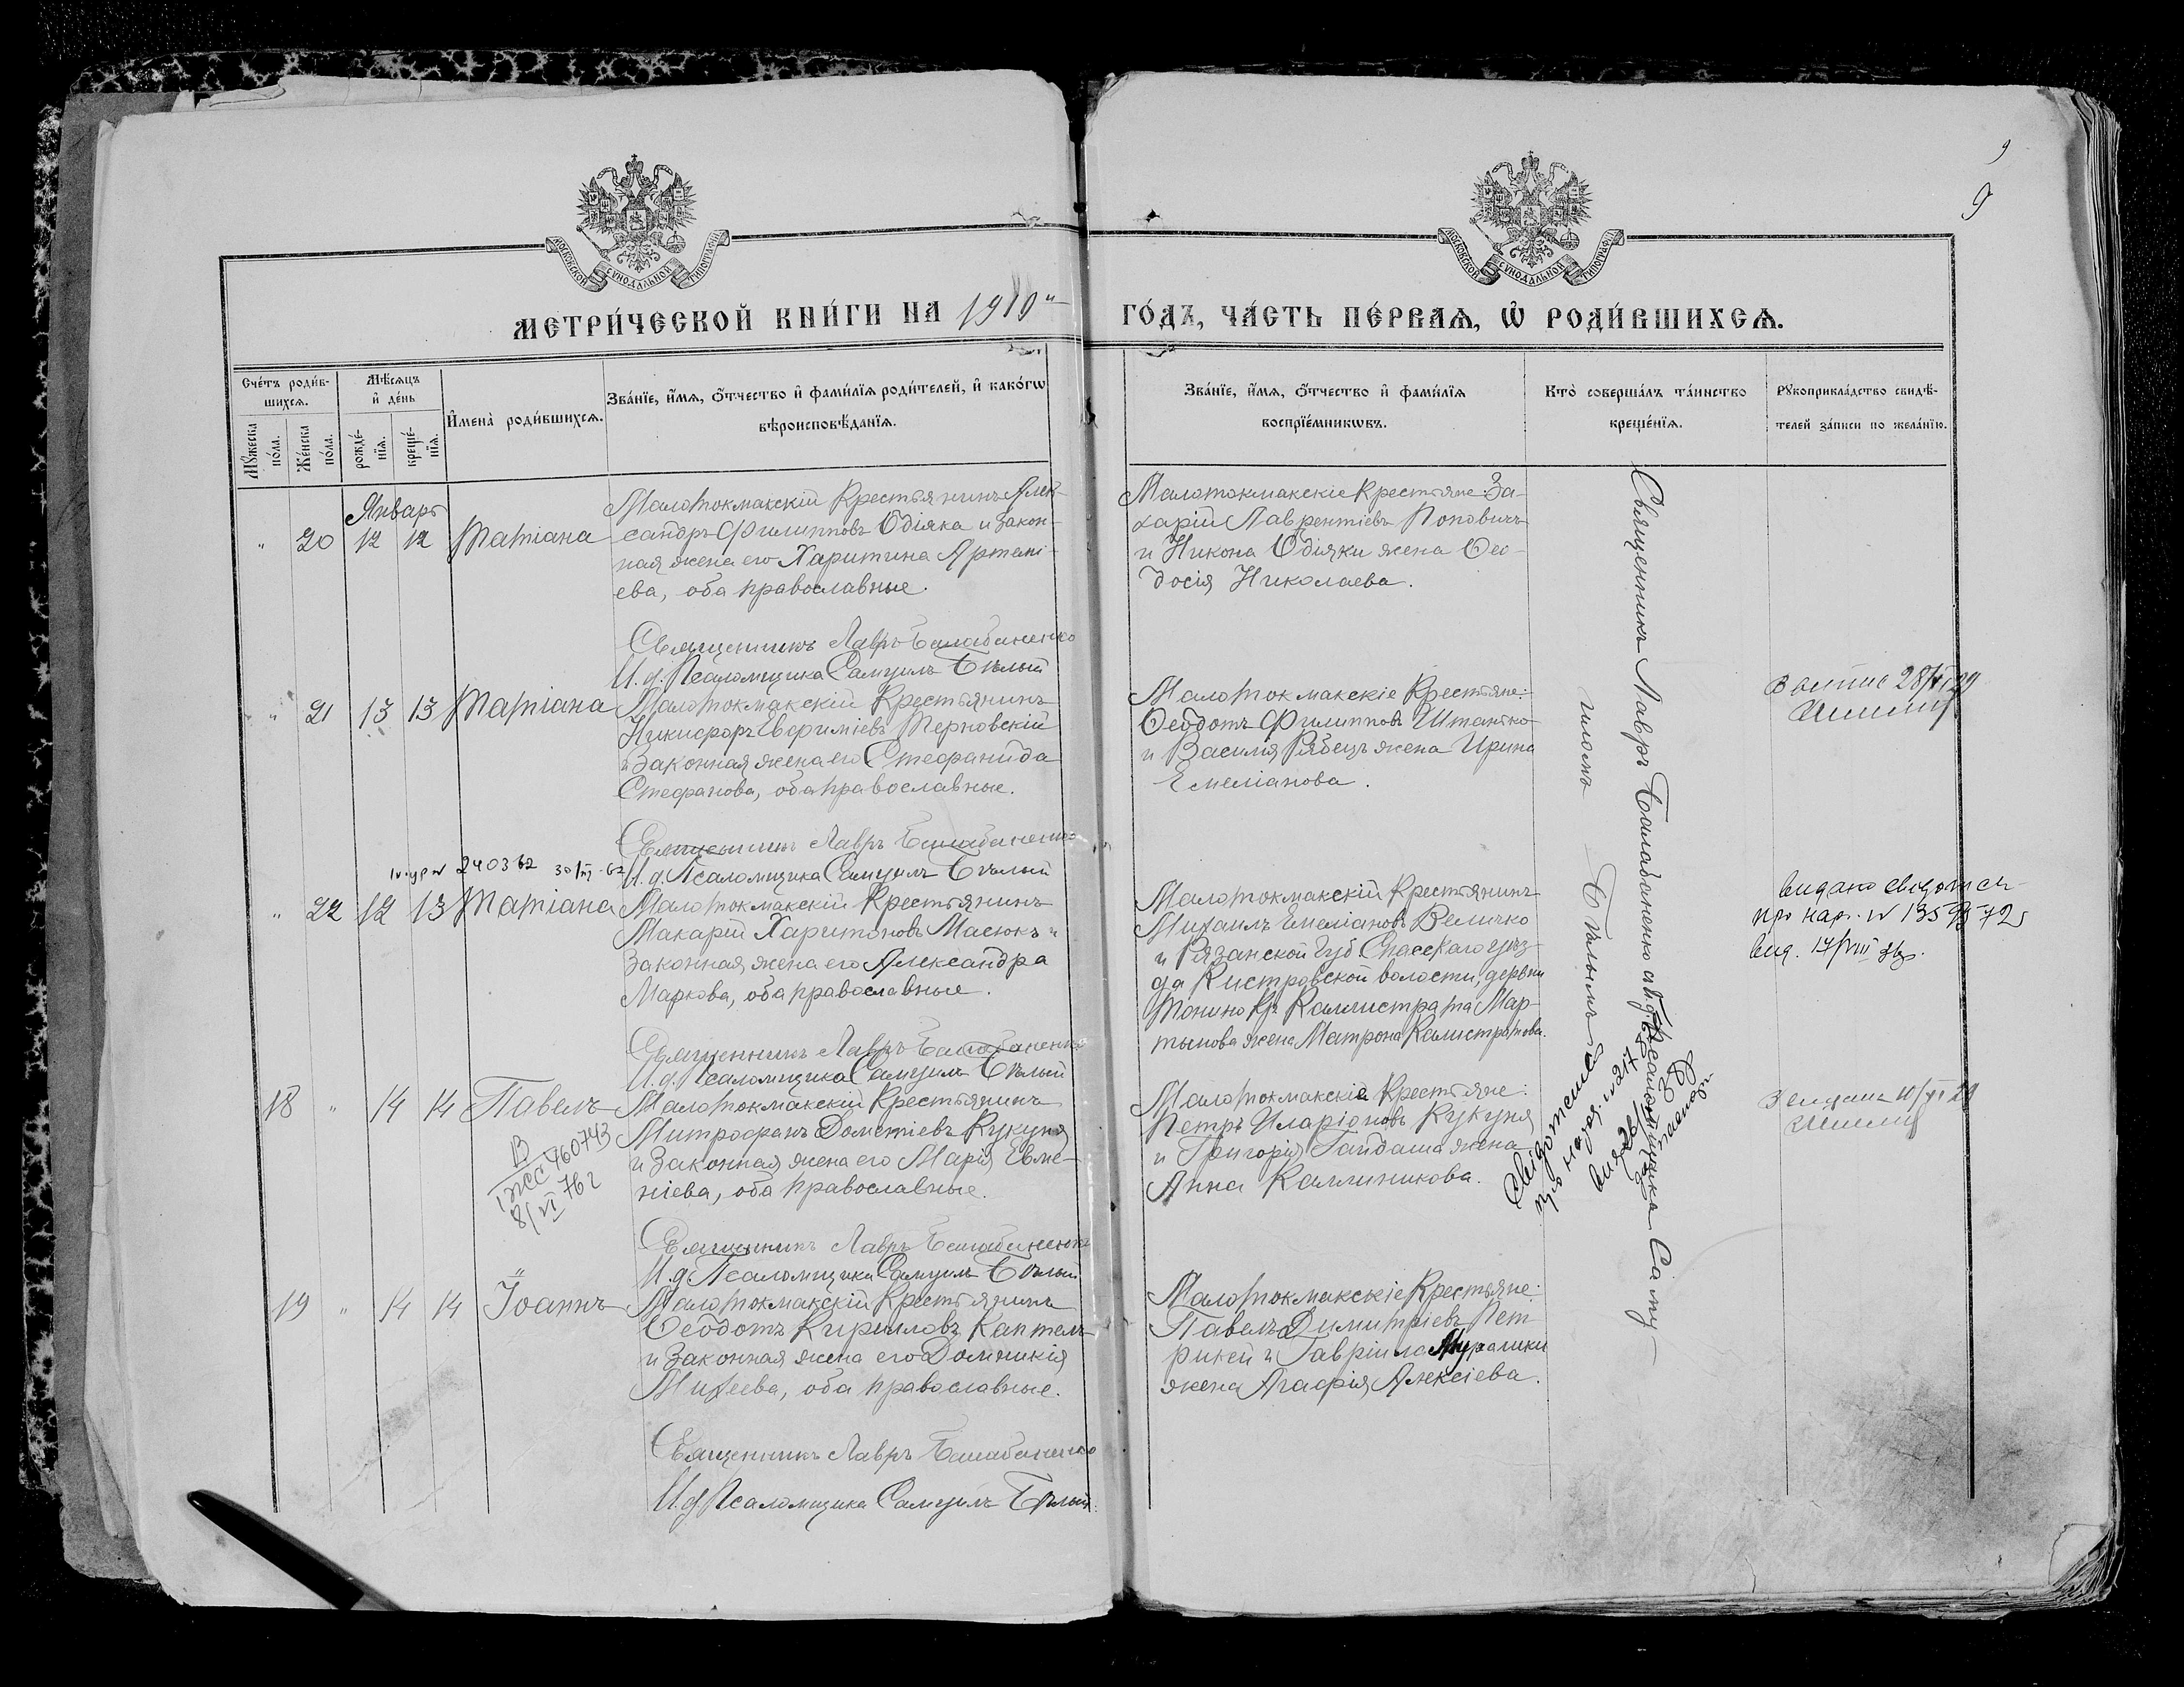 9
9
МОСКОВСКОЙ СУНОДАЛЬНОЙ ТИПОГРАФІИ
МОСКОВСКОЙ СУНОДАЛЬНОЙ ТИПОГРАФІИ
МЕТРИ́ЧЕСКОЙ КНИ́ГИ НА 1910й
ГО́ДЪ, ЧА́СТЬ ПЕ́РВАѦ, Ѡ҆ РОДИ́ВШИХСѦ.
Сче́тъ роди́в-
шихсѧ.
Мѣ́сѧцъ
и҆ де́нь
Мꙋ́жеска по́ла.
Же́нска по́ла.
рожде́-нїѧ.
креще́-нїѧ.
И҆мена̀ роди́вшихсѧ.
Зва́нїе, и҆́мѧ, ѻ҆́тчество и҆ фами́лїѧ роди́телей, и҆ како́гѡ
вѣроисповѣ́данїѧ.
Зва́нїе, и҆́мѧ, ѻ҆́тчество и҆ фами́лїѧ
воспрїе́мникѡвъ.
Кто̀ соверша́лъ та́инство
креще́нїѧ.
Рꙋкоприкла́дство свидѣ́-
телей за́писи по жела́нїю.
Январь
" 20 12 12 Татіана
Малотокмакскій Крестьянинъ Алек-
сандръ Филипповъ Одіяка и закон-
ная жена его Харитина Артемі-
ева, оба православные.
Священникъ Лавръ Балабаненко
И. д. Псаломщика Самуилъ Бѣлый
Малотокмакскіе Крестьяне: За-
харій Лаврентіевъ Поповичъ
и Никона Одіяки жена Ѳео-
досія Николаева.
" 21 13 13 Татіана
Малотокмакскій Крестьянинъ
Никифоръ Евфиміевъ Терновскій
и Законная жена его Стефанида
Стефанова, оба православные.
Священникъ Лавръ Балабаненко
И. д. Псаломщика Самуилъ Бѣлый
Малотокмакскіе Крестьяне:
Ѳеодотъ Филипповъ Штанько
и Василія Рябецъ жена Ирина
Емеліанова.
240362
" 22 12 13 Татіана
Малотокмакскій Крестьянинъ
Макарій Харитоновъ Масюкъ и
Законная жена его Александра
Маркова, оба православные.
Священникъ Лавръ Балабаненко
И. д. Псаломщика Самуилъ Бѣлый
Малотокмакскій Крестьянинъ
Михаилъ Емеліановъ Величко
и Рязанской Губ. Спасскаго уѣз-
да Кистровской волости, деревни
Тонино Кр. Каллистрата Мар-
тынова жена Матрона Калистратова.
18 " 14 14 Павелъ
Малотокмакскій Крестьянинъ
Митрофанъ Дометіевъ Кукуня
и Законная жена его Марія Евме-
ніева, оба православные.
Священникъ Лавръ Балабаненко
И. д. Псаломщика Самуилъ Бѣлый
460743
8/VI 76г
Малотокмакскіе Крестьяне:
Петръ Иларіоновъ Кукуня
и Григорія Гайдаша жена
Анна Каллиникова.
19 " 14 14 Іоаннъ
Малотокмакскій Крестьянинъ
Ѳеодотъ Кирилловъ Каптелъ
и Законная жена его Домникія
Михеева, оба православные.
Священникъ Лавръ Балабаненко
И. д. Псаломщика Самуилъ Бѣлый
Малотокмакскіе Крестьяне:
Павелъ Димитріевъ Пет-
рикей и Гавріила
жена Агафія Алексіева.
Священникъ Лавръ Балабаненко съ И. д. Псаломщика Саму-
иломъ Бѣлымъ